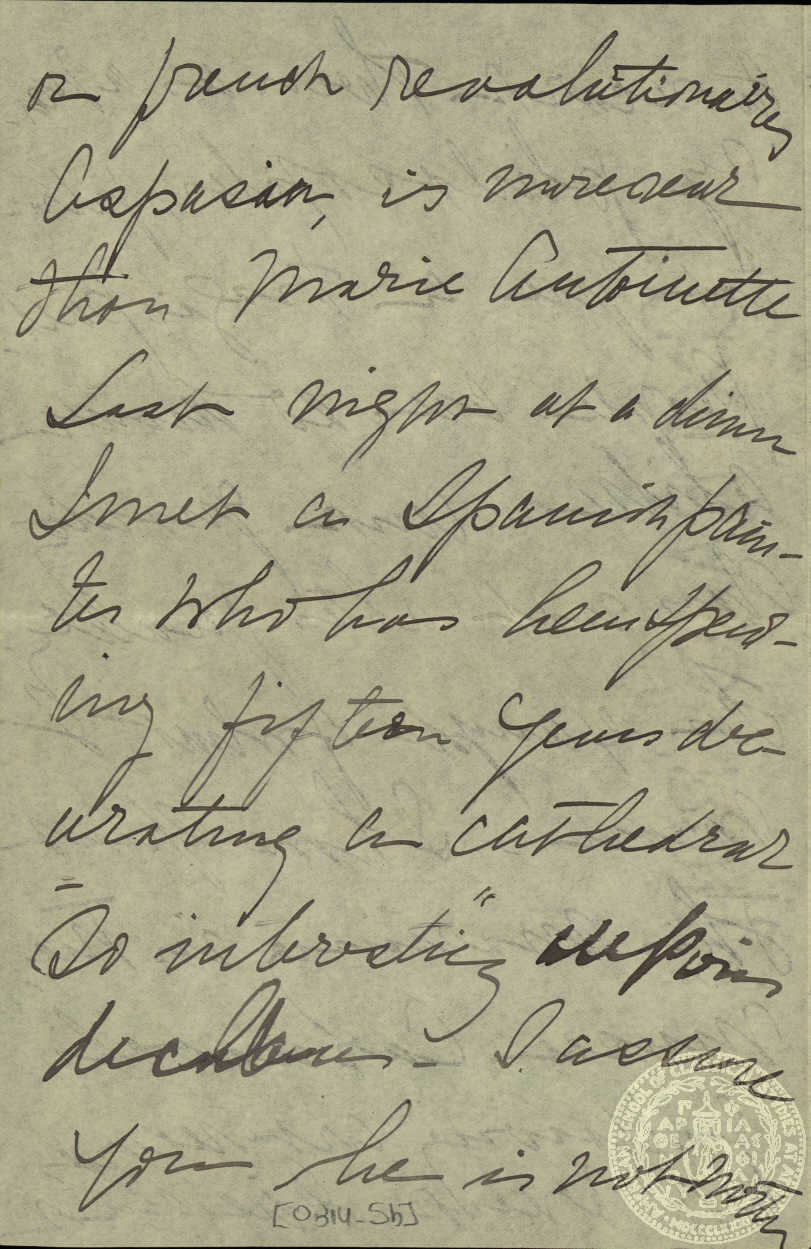 or french revolutionaires
Aspasia, is more dear
than Marie Antoinette
Last night at a dinner
I met a Spanish pain-
ter who has been spend-
ing fifteen years dec-
orating a cathedral
"So interesting"
I assure
you he is not
[0314-5b]